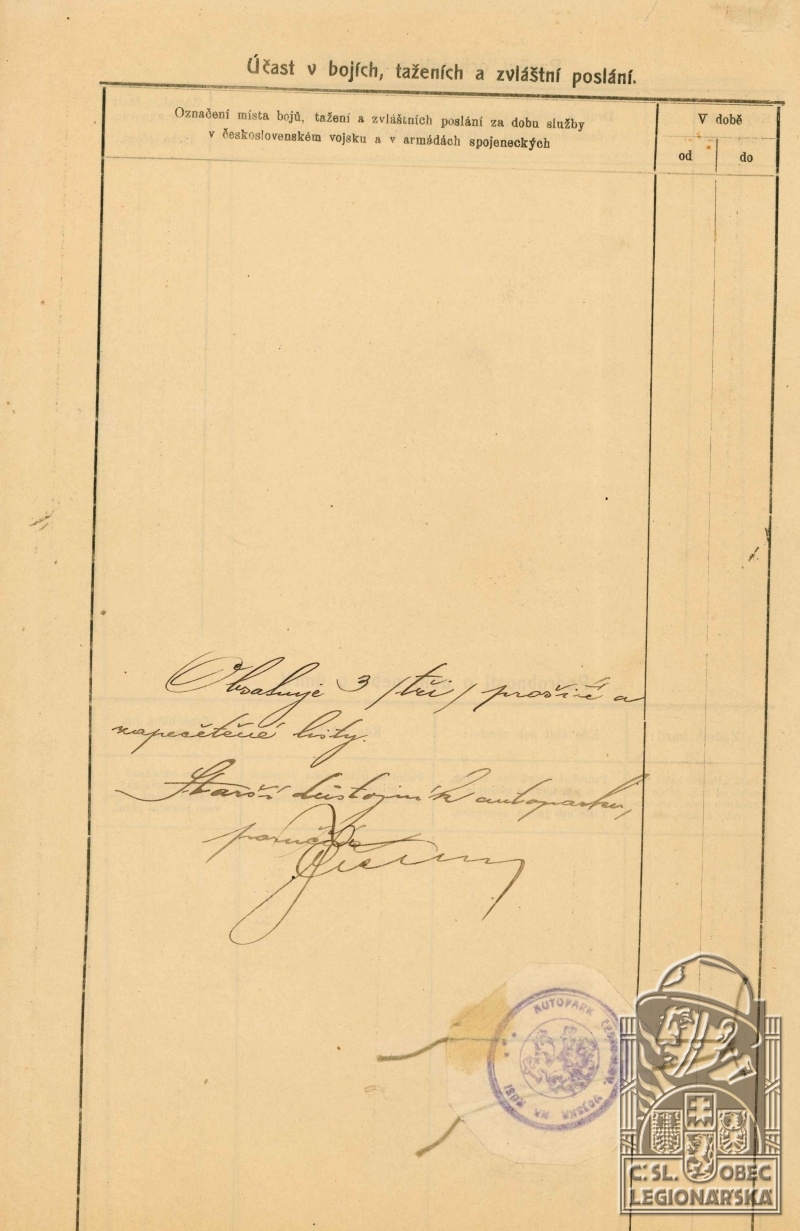 Účast v bojích, taženích a zvláštní poslání.
Označení místa bojů, tažení a zvláštních poslání za dobu služby
v československém vojsku a v armádách spojeneckých
V době
od
do
Obsahuje 3 /tři/ prošité a
napečetěné listy.
Starší důstojník autoparku,
poručík
AUTOPARK VOJSKA NA RUSI
Č.SL. OBEC
LEGIONÁŘSKÁ